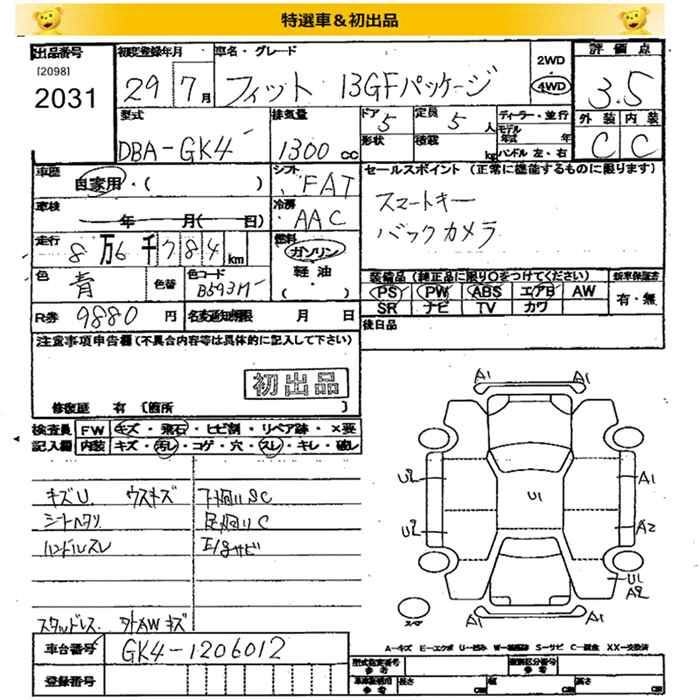 特選車＆初出品
出品番号
[2098]
2031
初度登録年月
29 7月
車名・グレード
フィット 13GFパッケージ
2WD
4WD
評価点
3.5
外装 内装
C C
型式
DBA-GK4
排気量
1300 cc
ドア
5
形状
定員
5 人
積載
kg
ディーラー・並行
モデル年式 年
ハンドル 左・右
車歴
自家用・( )
シフト
FAT
セールスポイント (正常に機能するものに限ります)
スマートキー
バックカメラ
車検
年 月( 日)
冷房
AAC
走行
8万6千784 km
燃料
ガソリン
軽油
・( )・
色
青
色替
色コード
B593M
装備品 (純正品に限り○をつけてください)
新車保証書
PS PW ABS エアB AW
SR ナビ TV カワ
有・無
R券
9880 円
名変通知期限 月 日
後日品
注意事項申告欄 (不具合内容等は具体的に記入して下さい)
初出品
修復歴 有 [箇所 ]
検査員記入欄
FW キズ・飛石・ヒビ割・リペア跡・×要
内装 キズ・汚レ・コゲ・穴・スレ・キレ・破レ
キズU. ウスキズ
下廻りSC
シートヘタリ
足廻りC
ハンドルスレ
E/gサビ
スタッドレス 外AWキズ
A1 A1
U2 A1
U1
U2 A2
U1
A2
A1 A1
スペア
A-キズ E-エクボ U-凹み W-補修跡 S-サビ C-腐食 XX-交換済
車台番号
GK4-1206012
登録番号
型式指定番号 参考
類別区分番号 参考
車庫証明用 参考
長さ CM
幅 CM
高さ CM